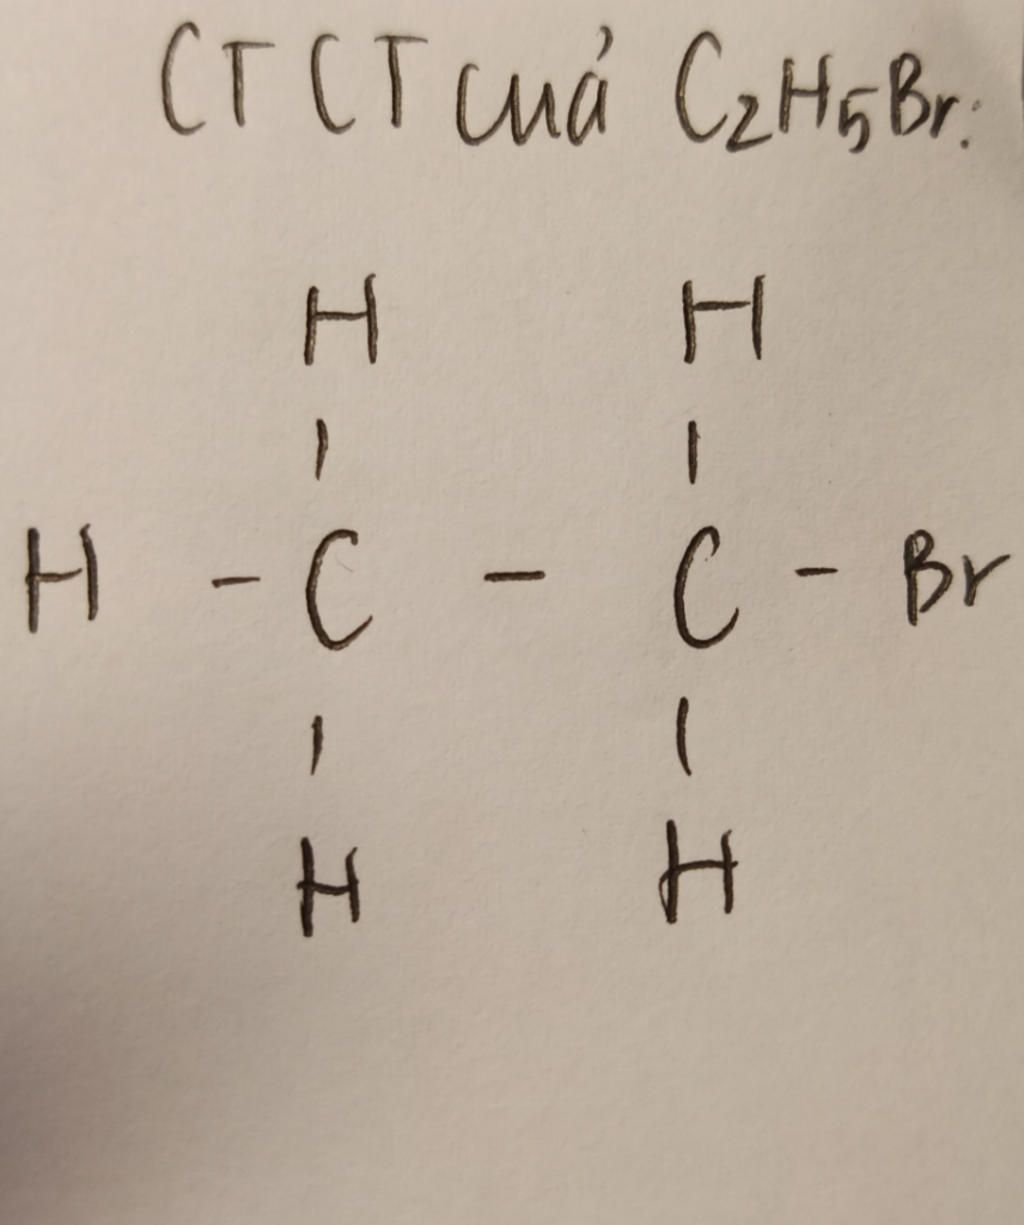 CTCT của C₂H₅Br:
H H
| |
H - C - C - Br
| |
H H